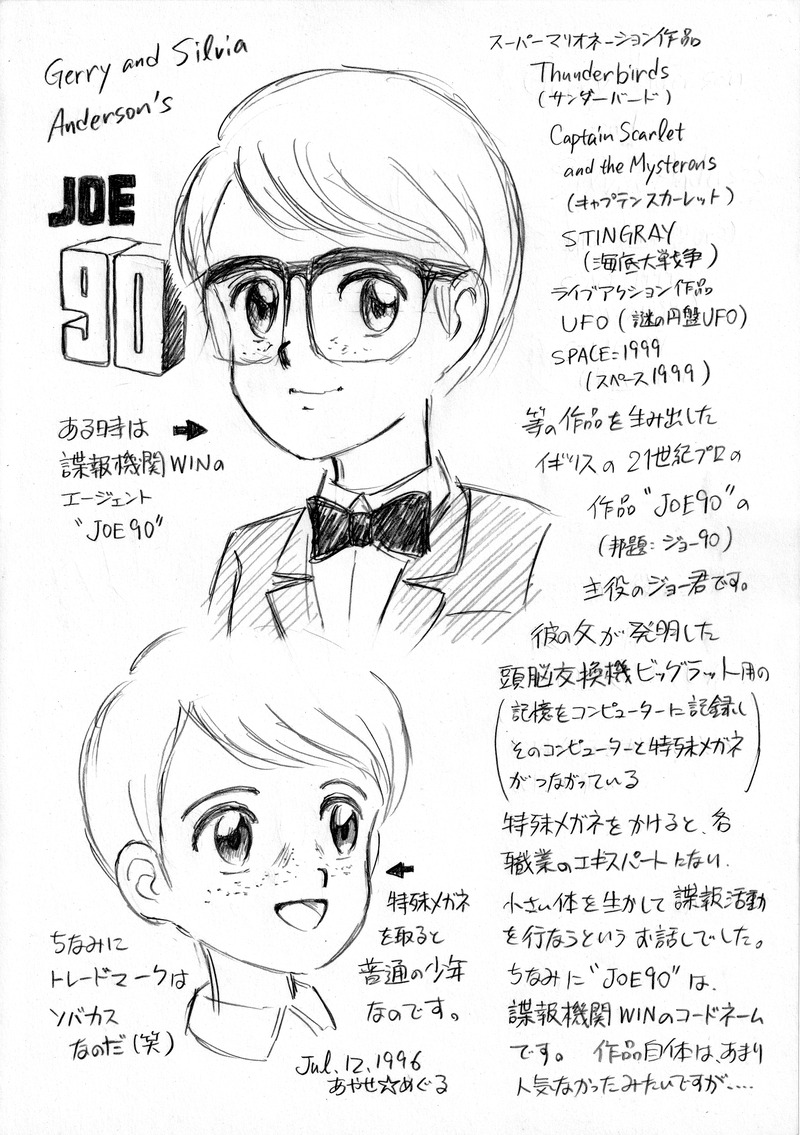 Gerry and Silvia
Anderson's
JOE
90
ある時は
諜報機関WINの
エージェント
"JOE90"
スーパーマリオネーション作品
Thunderbirds
(サンダーバード)
Captain Scarlet
and the Mysterons
(キャプテンスカーレット)
STINGRAY
(海底大戦争)
ライブアクション作品
UFO(謎の円盤UFO)
SPACE:1999
(スペース1999)
等の作品を生み出した
イギリスの21世紀プロの
作品"JOE90"の
(邦題:ジョー90)
主役のジョー君です。
彼の父が発明した
頭脳交換機ビッグラット用の
(記憶をコンピューターに記録し
そのコンピューターと特殊メガネ
がつながっている)
特殊メガネをかけると、各
職業のエキスパートになり、
小さい体を生かして諜報活動
を行なうというお話しでした。
ちなみに"JOE90"は、
諜報機関WINのコードネーム
です。作品自体は、あまり
人気なかったみたいですが....
特殊メガネ
を取ると
普通の少年
なのです。
ちなみに
トレードマークは
ソバカス
なのだ(笑)
Jul.12.1996
あやせ☆めぐる